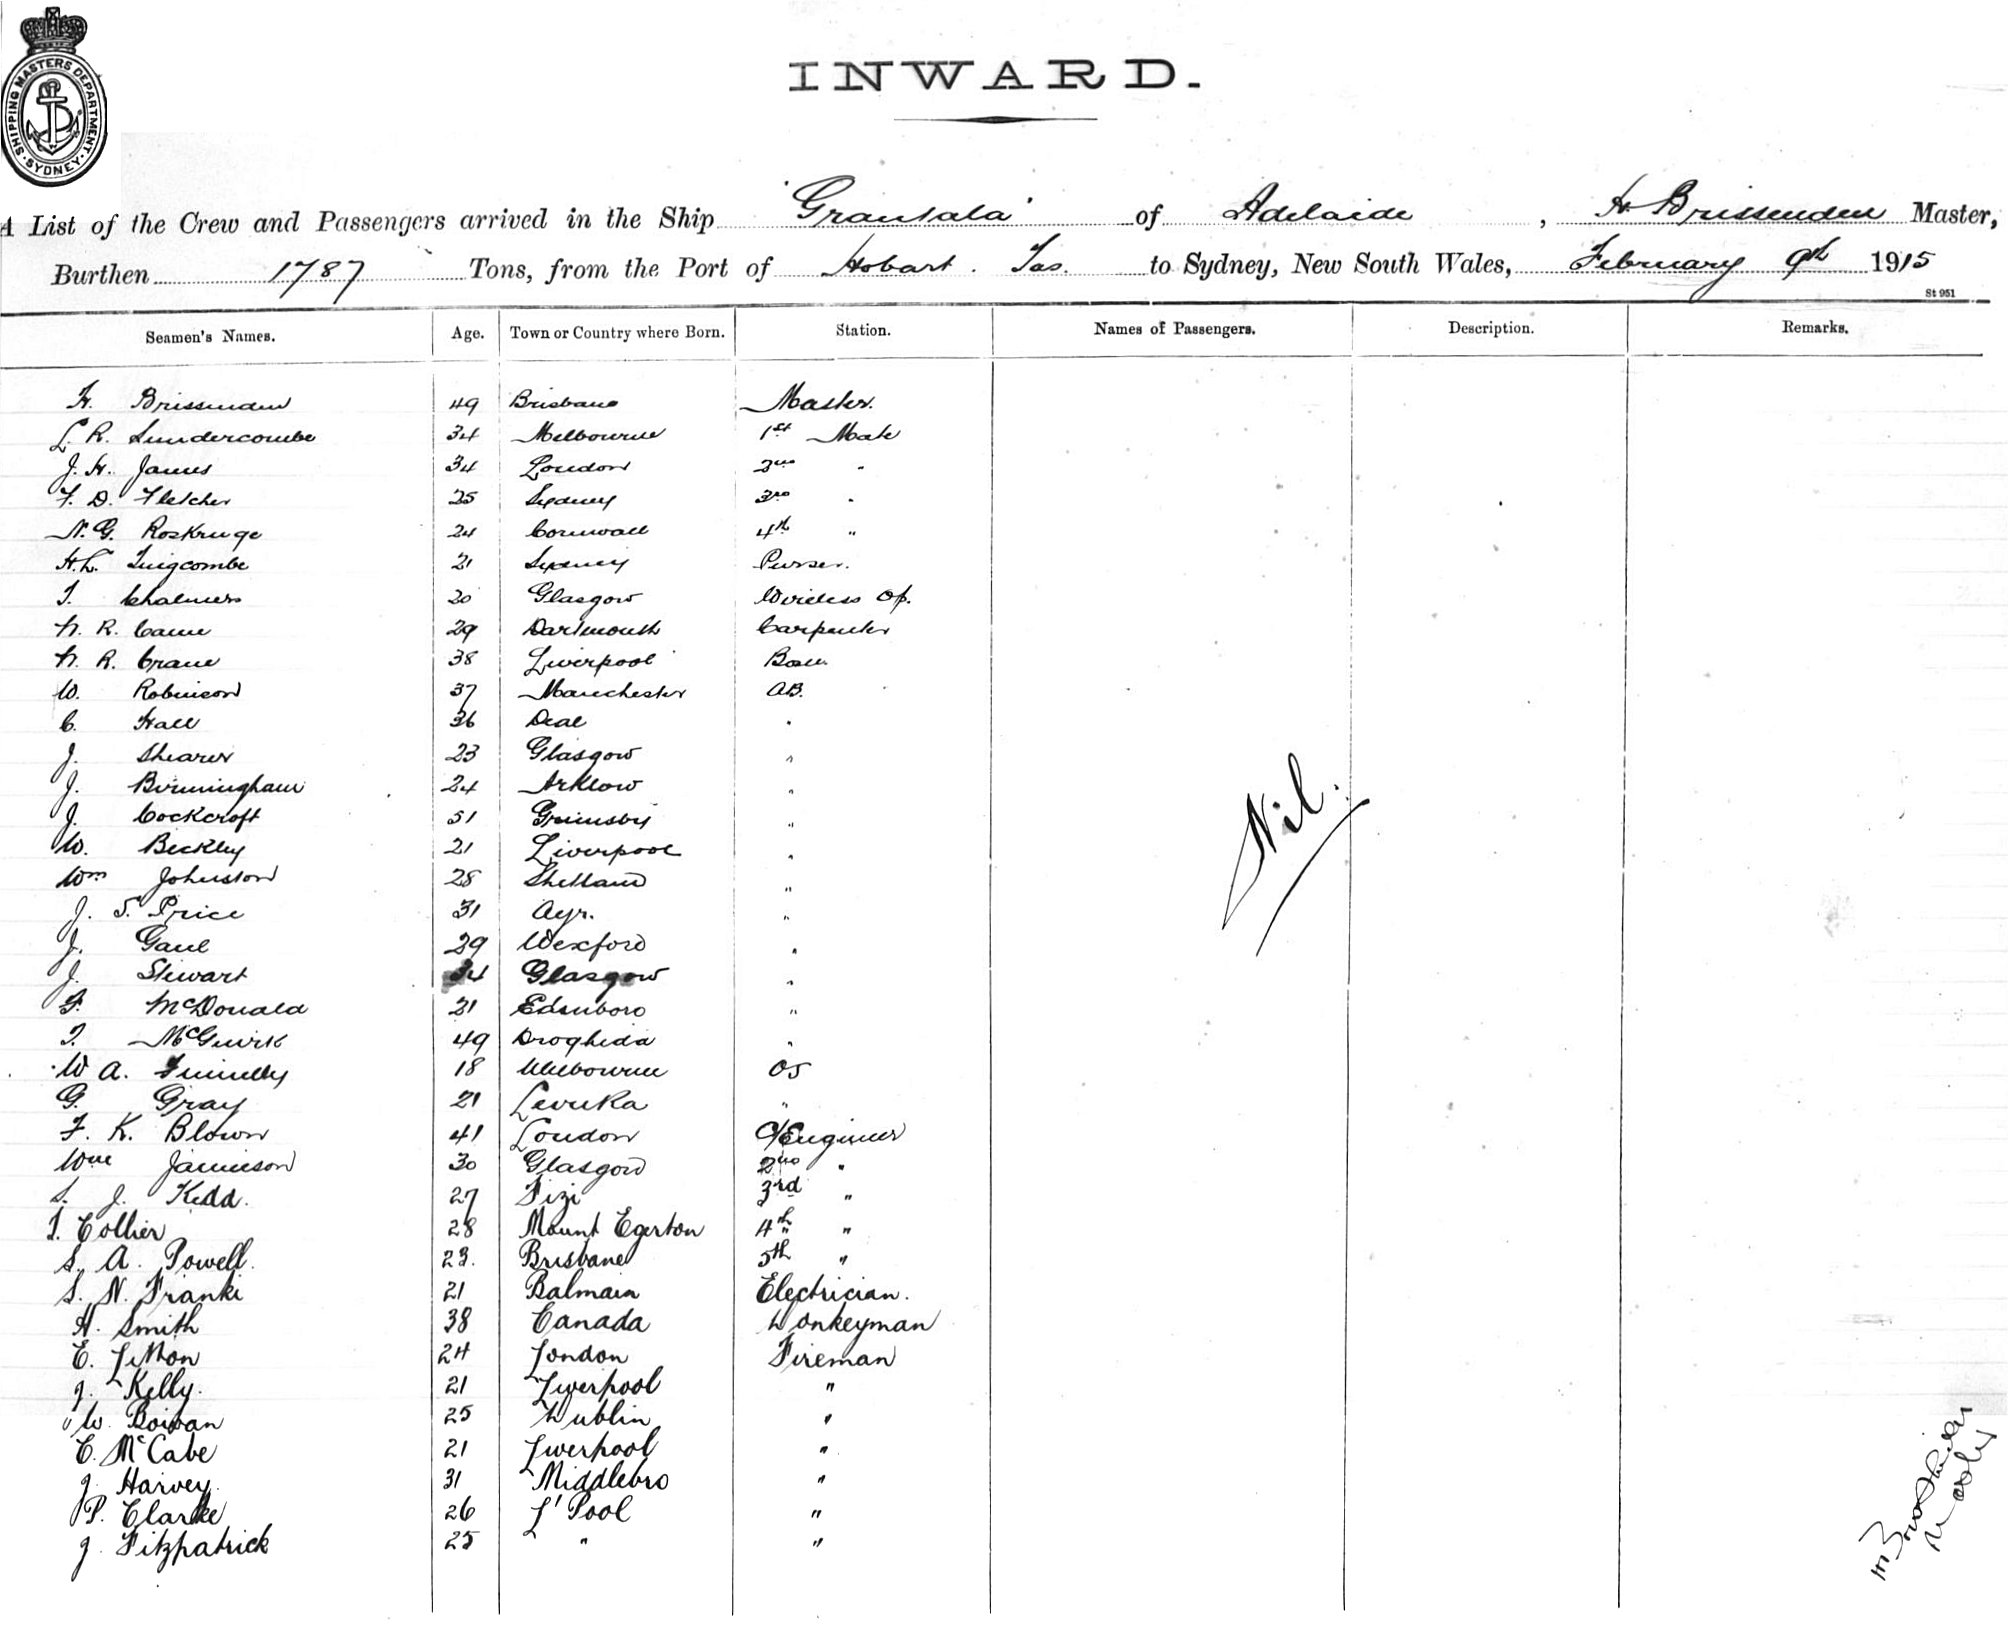 SHIPPING MASTERS DEPARTMENT. SYDNEY.
INWARD.
A List of the Crew and Passengers arrived in the Ship "Grantala" of Adelaide, H Brissenden Master,
Burthen 1787 Tons, from the Port of Hobart. Tas. to Sydney, New South Wales, February 9th 1915
St 951
Seamen's Names. Age. Town or Country where Born. Station. Names of Passengers. Description. Remarks.
H. Brissenden 49 Brisbane Master.
L. R. Lundercombe 34 Melbourne 1st Mate
J. H. James 34 London 2nd "
F. D. Fletcher 25 Sydney 3rd "
N. G. Roskruge 24 Cornwall 4th "
H. L. Tuigcombe 21 Sydney Purser.
T. Chalmers 20 Glasgow Wireless Op.
N. R. Came 29 Dartmouth Carpenter
N. R. Crane 38 Liverpool Bosn.
W. Robinson 37 Manchester AB.
C. Hall 36 Deal "
J. Shearer 23 Glasgow "
J. Birmingham 24 Arklow "
J. Cockcroft 51 Grimsby "
W. Beckley 21 Liverpool "
Wm Johnston 28 Shetland "
J. S. Price 31 Ayr. "
J. Gaul 29 Wexford "
J. Stewart 34 Glasgow "
F. McDonald 31 Edinboro "
T. McGuirk 49 Drogheda "
W A. Finnelly 18 Melbourne OS
G. Gray 21 Levuka "
F. K. Blown 41 London C/Engineer
Wm Jamieson 30 Glasgow 2nd "
S. J. Kidd. 27 Fizi 3rd "
T. Collier 28 Mount Egerton 4th "
S. A. Powell. 23. Brisbane 5th "
S. N. Franki 21 Balmain Electrician.
H. Smith 38 Canada Donkeyman
E. Litton 24 London Fireman
J. Kelly. 21 Liverpool "
W. Bowan 25 Dublin "
E. McCabe 21 Liverpool "
J. Harvey. 31 Middlebro "
P. Clarke 26 L'Pool "
J. Fitzpatrick 25 " "
Nil.